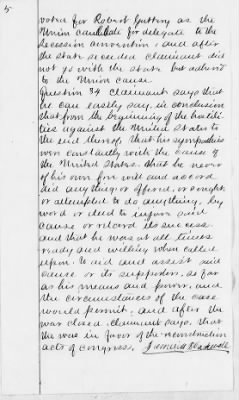 5
voted for Robert Guttry as the
Union candidate for delegate to the
Secession convention, and after
the state seceded claimant did
not go with the state but adhered
to the Union cause.
Question 34 Claimant says that
he can easily say, in conclusion
that from the beginning of the hostili-
ties against the United States to
the end thereof that his sympathies
were constantly with the cause of
the United States. that he never
of his own free will and accord
did anything or offered, or sought
or attempted to do anything, by
word or deed to injure said
cause or retard its success
and that he was at all times
ready and willing when called
upon. to aid and assist said
cause or its supporters, so far
as his means and power, and
the circumstances of the case
would permit, and after the
war closed, claimant says, that
he was in favor of the reconstruction
acts of Congress.